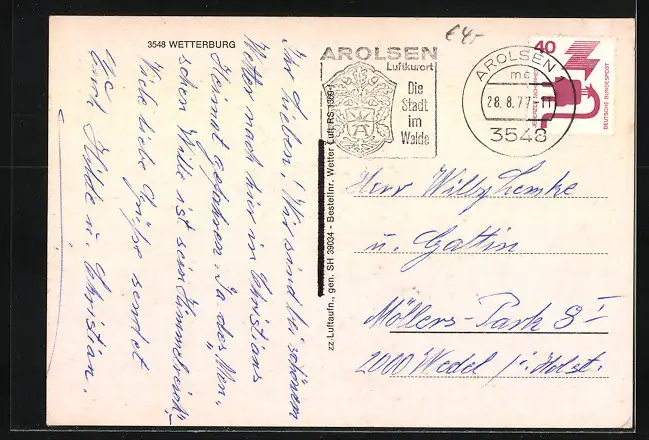 3548 WETTERBURG
€ 4,-
AROLSEN
Luftkurort
Die
Stadt
im
Walde
A
AROLSEN
mc
28.8.77-11
3548
40
JEDERZEIT SICHERHEIT
DEUTSCHE BUNDESPOST
Ihr Lieben! Wir sind bei schönem
Wetter nach hier in Christians
Heimat gefahren. Ja des Men-
schen Wille ist sein Himmelreich,-
Viele liebe Grüße sendet
Euch Hilde u. Christian.
zz.Luftaufn., gen. SH 39034 - Bestellnr. Wetter Luft RS 1309-1
Herr Willy Lemke
u. Gattin
Möllers-Park 8 I
2000 Wedel /i. Holst.